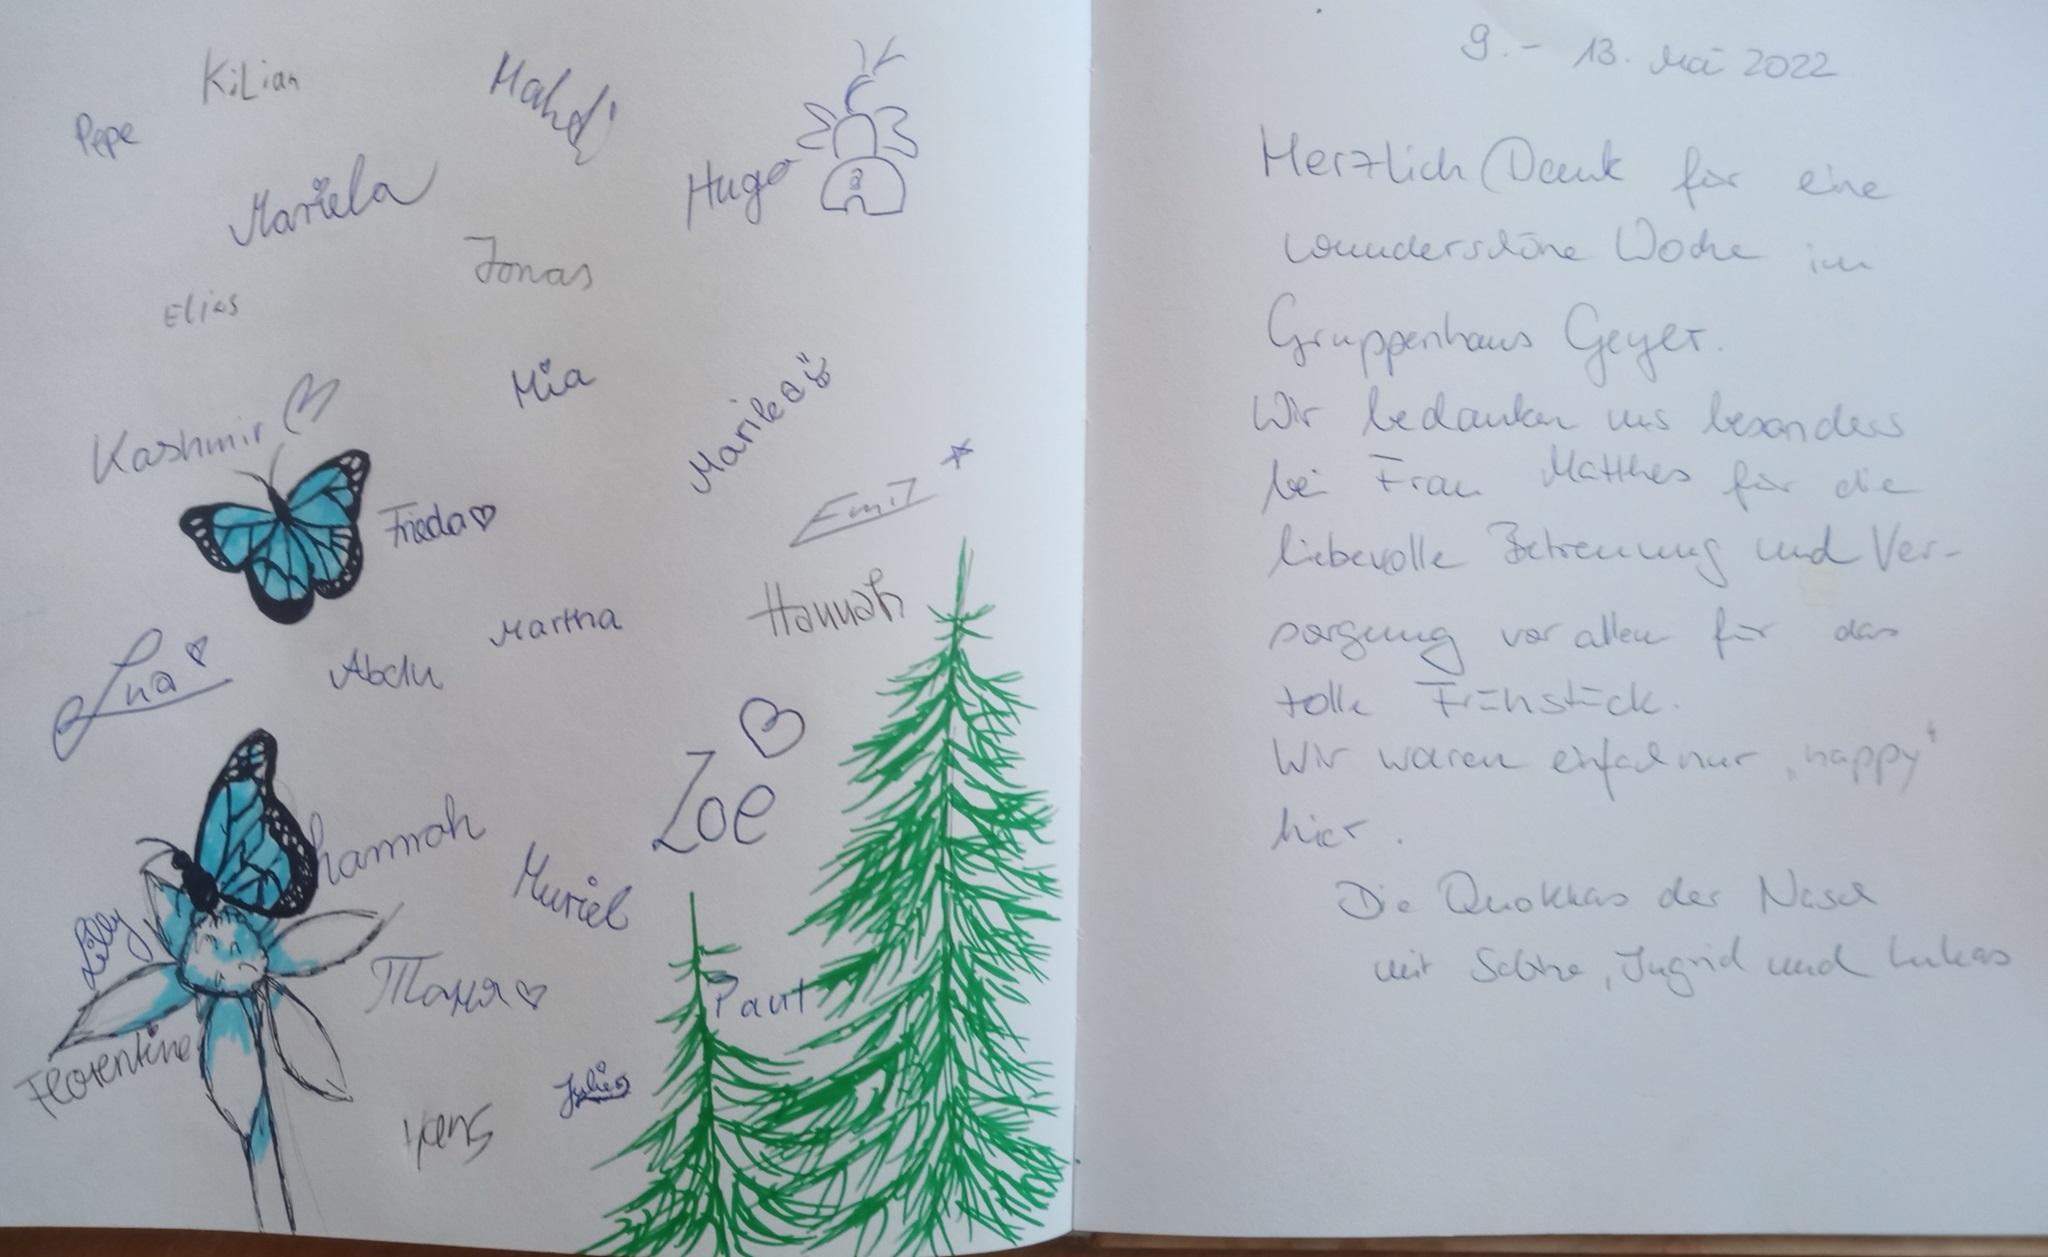 Kilian
Pepe
Mariela
Hugo
Jonas
Elias
Mia
Kashmir
Frieda
Emil
Hannah
Martha
Abdu
Zoe
hannah
Muriel
Lilly
Таня
Paul
Florentine
9. - 13. Mai 2022
Herzlich Dank für eine
wunderschöne Woche im
Gruppenhaus Geyer.
Wir bedanken uns besonders
bei Frau Matthes für die
liebevolle Betreuung und Ver-
sorgung vor allem für das
tolle Frühstück.
Wir waren einfach nur „happy“
hier.
Die Quokkas der Nasch
mit Sabine, Ingrid und Lukas